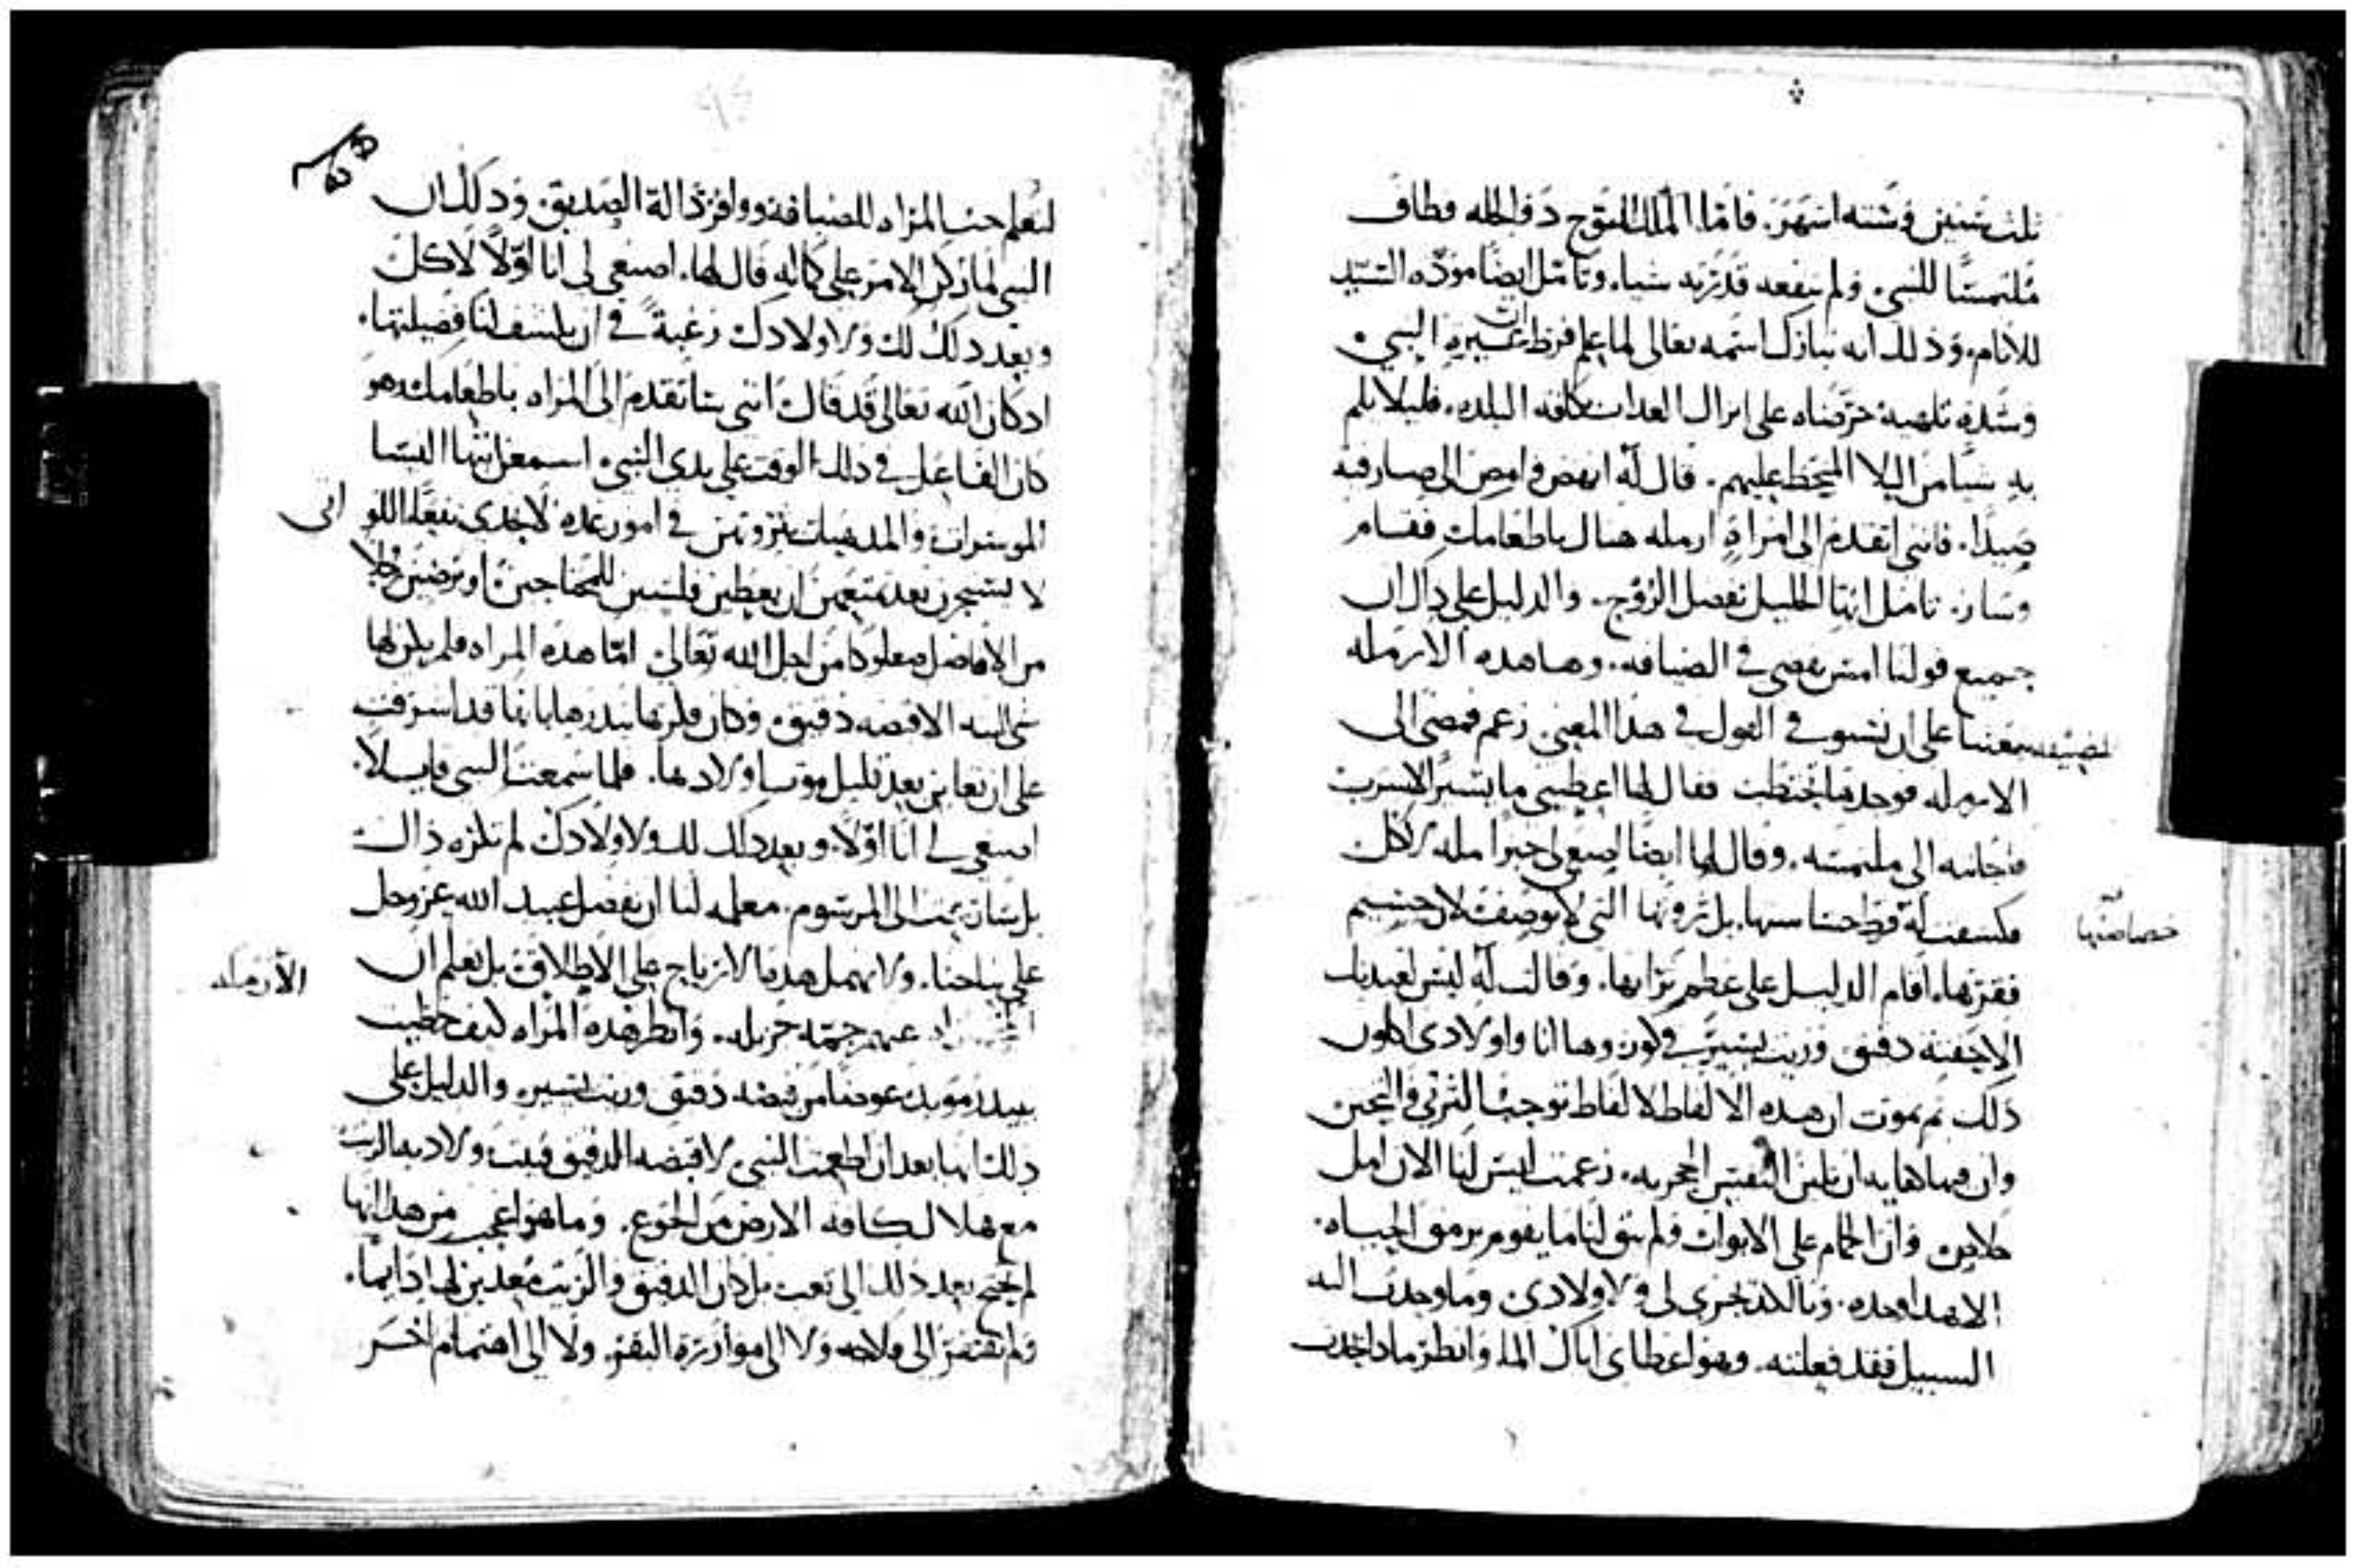 ثلث سنين وستة اشهر. فاما الملك المتوج ذو الحله فطاف
ملتمسًا للنبي ولم ينفعه قدرته شيا. وتامل ايضًا مودة السيد
للانام. وذلك انه تبارك اسمه تعالى لما علم فرط غيرة النبي
وشدة تلهبه حرصًاه على انزال العداب بكافة البلده. فليلا يلم
به شيا من البلا المحيط عليهم. قال له انهض وامض الى صارفية
صيدا. فانني اتقدم الى امراةٍ ارمله هناك باطعامك فقام
وسار. تامل ايها الخليل تفضل الزوج. والدليل على ذاك ان
جميع قولنا امس مضى في الضيافه. وها هده الارمله
المضيفه تبعثنا على ان نسهب في القول في هذا المعنى زعم فمضى الى
الارمله فوجدها تحتطب فقال لها اعطيني ما يتيسر لاشرب
فاجابته الى ملتمسه. وقال لها ايضا اصنعي لي خبزا مله لاكل
فكشفت له قط خساستها. بل ثروتها التي لا توصف لان جسيم
خصاصتها
فقرها. اقام الدليل على عظم ثراها. وقالت له ليس لعبدتك
الا حفنة دقيق وزيت يسير في كوز وها انا واولادي ناكل
ذلك ثم نموت ان هده الالفاظ لالفاظ توجب الترثي والتحنن
وان فيها كفايه ان تلين النفس الحجريه. زعمت ليس لنا الان امل
خلاص وان الحمام على الابواب ولم يبق لنا ما يقوم برمق الحياه.
الا هدا وحده. وبالكد يجزي لي ولاولادي وما وجدت اليه
السبيل فقد فعلته. وهو اعطاي اياك الما وانظر ماذا يحدث
لتعلم حب المراه للضيافه ووافر ذالة الصديق. وذلك ان
النبي لما ذكرت الامر على كماله قال لها. اصنعي لي انا اولًا لاكل
وبعد ذلك لك ولاولادك رغبةً في ان يكشف لنا فضيلتها.
اد كان الله تعالى قد قال انني ساتقدم الى المراه باطعامك وهو
كان الفاعل في ذلك الوقت على يدي النبي اسمعن ايتها النسا
الموسرات والمدهيات بثروتهن في امور عده لا تجدي نفعًا. اللواتي
لا يستجزن بعد تنعمهن ان يعطين فلسين للمحتاجين او يرضين رجلا
من الافاضل صعلوكا من اجل الله تعالى. اما هده المراه فلم يكن لها
شي البته الا قبضه دقيق وكان فكرها ينذرها بانها قد اشرفت
على ان تعاين بعد قليل موت اولادها. فلما سمعت النبي قايلًا.
اصنعي لي انا اولًا. وبعد ذلك لك ولاولادك لم تكره ذاك
بل سارعت الى المرسوم. معلمه لنا ان نفضل عبيد الله عز وجل
على نياحنا. ولا نهمل هدا الارباح على الاطلاق بل نعلم ان
الارمله
عنهم جمة جزيله. وانظر هده المراه كيف حظيت
ببيدر موبد عوضا من قبضه دقيق وزيت يسير. والدليل على
ذلك انها بعد ان اطعمت النبي لا قبضه الدقيق فنيت ولا دبة الزيت
مع هلاك كافه الارض من الجوع. وما هو اعجب من هدا انها
لم تحتج بعد ذلك الى تعب بل كان الدقيق والزيت معدين لها دايمًا.
ولم تفتقر الى فلاحه ولا الى موازرة البقر. ولا الى اهتمام اخر